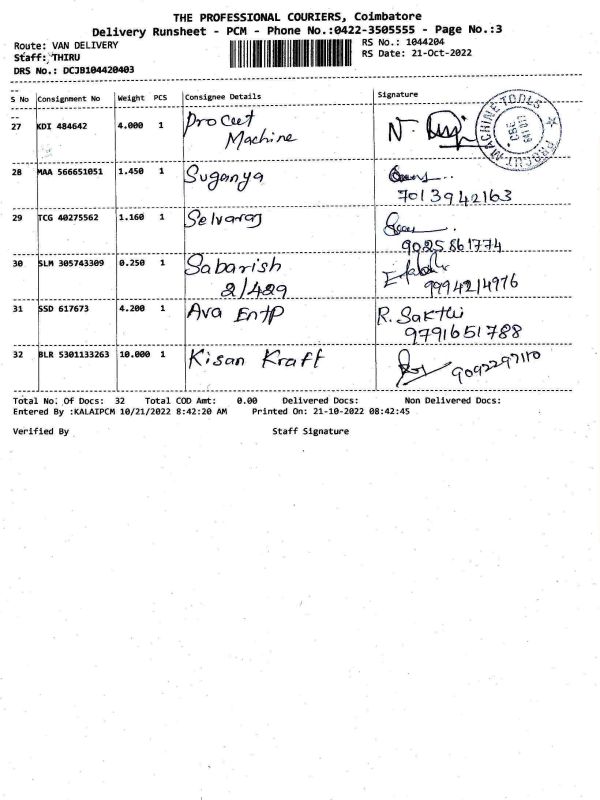 THE PROFESSIONAL COURIERS, Coimbatore
Delivery Runsheet - PCM - Phone No.:0422-3505555 - Page No.:3
Route: VAN DELIVERY
RS No.: 1044204
Staff: THIRU
RS Date: 21-Oct-2022
DRS No.: DCJB104420403
S No Consignment No Weight PCS Consignee Details Signature
27 KDI 484642 4.000 1 Procut
Machine
N.
PROCUT MACHINE TOOLS
CBE
641 013
28 MAA 566651051 1.450 1 Suganya
7013942163
29 TCG 40275562 1.160 1 Selvaraj
9025861774
30 SLM 305743309 0.250 1 Sabarish
2/429
9994214976
31 SSD 617673 4.200 1 Ava Entp R. Sakthi
9791651788
32 BLR 5301133263 10.000 1 Kisan Kraft 9092297110
Total No. Of Docs: 32 Total COD Amt: 0.00 Delivered Docs: Non Delivered Docs:
Entered By :KALAIPCM 10/21/2022 8:42:20 AM Printed On: 21-10-2022 08:42:45
Verified By Staff Signature